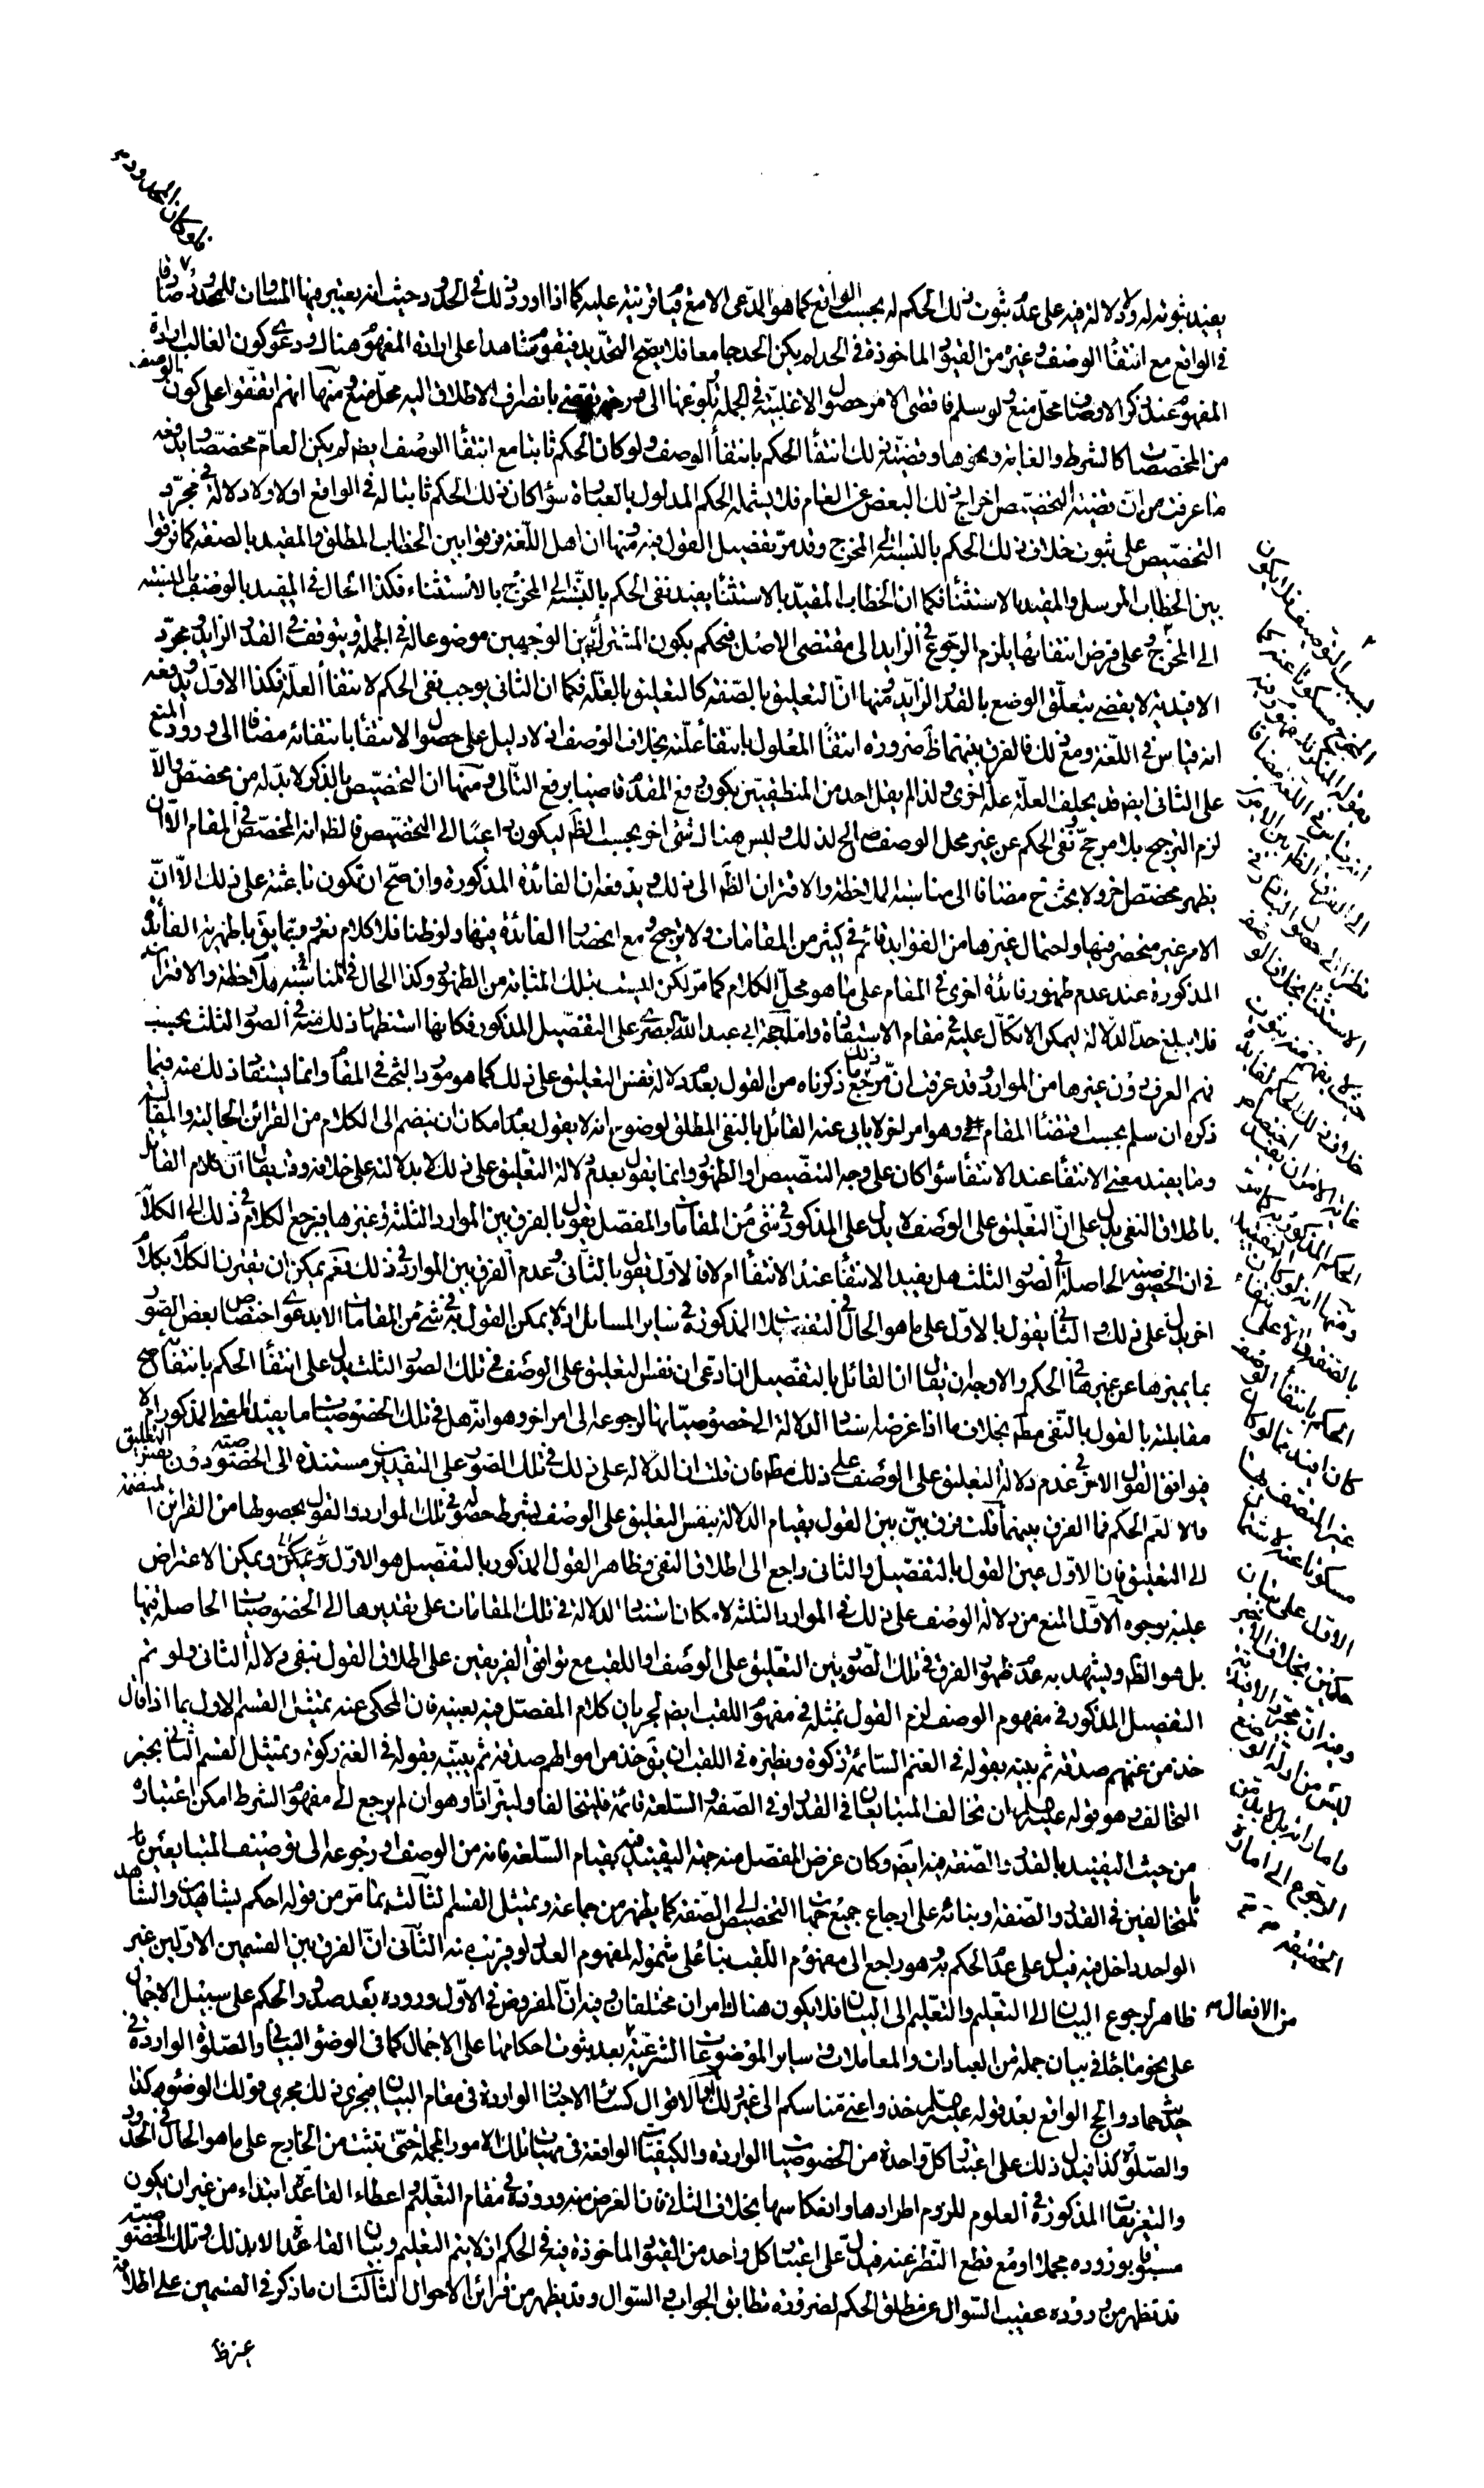 يفيد ثبوته له ولا دلالة فيه على عدم ثبوت ذلك الحكم له بحسب الواقع كما هو المدعى الا مع قيام قرينة عليه كما اذا ورد ذلك في الحدود حيث انه يعتبر فيها المساوات للمحدود
في الواقع مع انتفاء الوصف وغيره من القيود الماخوذة في الحد لم يكن الحد جامعا فلا يصح التحديد فيقوم شاهدا على ارادة المفهوم هناك ودعوى كون الغالب ارادة
المفهوم عند ذكر الاوصاف محل منع ولو سلم فاقضى الامر حصول الاغلبية في الجملة بانصراف الاطلاق اليه محل منع ومنها انهم اتفقوا على كون الوصف
من المخصصات كالشرط والغاية ونحوها وقضية ذلك انتفاء الحكم بانتفاء الوصف ولو كان الحكم ثابتا مع انتفاء الوصف ايضا لم يكن العام مخصصا ويدفعه
ما عرفت من ان قضية التخصيص اخراج ذلك البعض عن العام فلا يشمله الحكم المدلول بالعبارة سواء كان ذلك الحكم ثابتا له في الواقع اولا ولا دلالة في مجرد
التخصيص على ثبوت خلاف ذلك الحكم بالنسبة الى المخرج وقد مر تفصيل القول فيه ومنها ان اهل اللغة فرقوا بين الخطاب المطلق والمقيد بالصفة كما فرقوا
بين الخطاب المرسل والمقيد بالاستثناء فكما ان الخطاب المقيد بالاستثناء يفيد نفى الحكم بالنسبة الى المخرج بالاستثناء فكذا الحال في المقيد بالوصف بالنسبة
الى المخرج على فرض انتفائها يلزم الرجوع في الزايد الى مقتضى الاصل فنحكم بكون المشترك بين الوجهين موضوعا له في الجملة ويتوقف في القدر الزايد ومجرد
الافيدية لا يقضى بتعلق الوضع بالقدر الزايد ومنها ان التعليق بالصفة كالتعليق بالعلة فكما ان الثانى يوجب نفى الحكم لانتفاء العلة فكذا الاول ويدفعه
انه قياس في اللغة ومع ذلك فالفرق بينهما ظ ضرورة انتفاء المعلول بانتفاء علته بخلاف الوصف اذ لا دليل على حصول الانتفاء بانتفائه مضافا الى ورود المنع
على الثانى ايضا فقد يخلف العلة علة اخرى ولذا لم يقل احد من المنطقيين بكون رفع المقدم قاضيا برفع التالى ومنها ان التخصيص بالذكر لا بد له من مخصص والا
لزم الترجيح بلا مرجح ونفى الحكم عن غير محل الوصف صالح لذلك وليس هناك شئ اخر بحسب الظ ليكون داعيا الى التخصيص فالظ انه المخصص في المقام الا ان
يظهر مخصص اخر ولا بحث ح مضافا الى مناسبة الملاحظة والاقتران الظ الى ذلك ويدفعه ان الفائدة المذكورة وان صح ان تكون باعثة على ذلك الا ان
الامر غير منحصر فيها واحتمال غيرها من الفوايد قائم في كثير من المقامات ولا ترجيح ومع انحصار الفائدة فيها ولو ظنا فلا كلام نعم ربما يق باظهرية الفائدة
المذكورة عند عدم ظهور فائدة اخرى في المقام على ما هو محل الكلام كما مر لكن ليست بتلك المثابة من الظهور وكذا الحال في المناسبة ملاحظة والاقتران
فلا يبلغ حد الدلالة ليمكن الاتكال عليه في مقام الاستفادة واما حجة ابى عبد الله البصرى على التفصيل المذكور فكانها استظهار ذلك منه في الصور الثلث بحسب
فهم العرف دون غيرها من الموارد وقد عرفت ان مرجع ذلك ما ذكرناه من القول بعدم دلالة نفس التعليق على ذلك كما هو مورد البحث في المقام وانما يستفاد ذلك منه فيما
ذكره ان سلم بحسب اقتضاء المقام وهو امر اخر لا يابى عنه القائل بالنفى المطلق لوضوح انه لا يقول بعدم امكان ان ينضم الى الكلام من القرائن الحالية والمقالية
وما يفيد معنى الانتفاء عند الانتفاء سواء كان على وجه التنصيص او الظهور وانما يقول بعدم دلالة التعليق على ذلك لا بدلالته على خلافه وقد يقال ان كلام القائل
باطلاق النفى يدل على ان التعليق على الوصف لا يدل على المذكور في شئ من المقامات والمفصل يقول بالفرق بين الموارد الثلثة وغيرها فيرجع الكلام في ذلك الى الكلام
في ان الخصوصية الحاصلة في الصور الثلث هل يفيد الانتفاء عند الانتفاء ام لا فالاول يقول بالثانى وعدم الفرق بين الموارد في ذلك نعم يمكن ان يقترن الكلام بكلام
اخر يدل على ذلك والثانى يقول بالاول على ما هو الحال في المذكورة في ساير المسائل اذ لا يمكن القول به في شئ من المقامات الا بدعوى اختصاص بعض الصور
بما يميزها عن غيرها في الحكم والاوجه ان يقال ان القائل بالتفصيل ان ادعى ان نفس التعليق على الوصف في تلك الصور الثلث يدل على انتفاء الحكم بانتفائه صح
مقابلته بالقول بالنفى مطلقا بخلاف ما اذا عرضا اسناد الدلالة الى خصوصياتها لرجوعه الى امر اخر وهو انه هل في تلك الخصوصيات ما يفيد المعنى المذكور ام لا
فيوافق القول الاخر في عدم دلالة التعليق على الوصف على ذلك مطلقا فان قلت ان الدلالة على ذلك في تلك الصور على التقديرين مستندة الى الخصوصية دون نفس التعليق
والا لعم الحكم فما الفرق بينهما قلت فرق بين بين القول بقيام الدلالة بنفس التعليق على الوصف بشرط حصوله في تلك الموارد والقول بحصولها من القرائن المنضمة
الى التعليق فان الاول عين القول بالتفصيل والثانى راجع الى اطلاق النفى وظاهر القول المذكور بالتفصيل هو الاول ويمكن الاعتراض
عليه بوجوه الاول المنع من دلالة الوصف على ذلك في الموارد الثلثة لامكان استناد الدلالة في تلك المقامات على تقديرها الى الخصوصيات الحاصلة فيها
بل هو الظ ويشهد به عدم ظهور الفرق في تلك الصور بين التعليق على الوصف واللقب مع توافق الفريقين على اطلاق القول بنفى دلالة الثانى ولو تم
التفصيل المذكور في مفهوم الوصف لزم القول بمثله في مفهوم اللقب ايضا لجريان كلام المفصل فيه بعينه فان المحكى عنه تمثيل القسم الاول بما اذا قال
خذ من غنمهم صدقة ثم بينه بقوله في الغنم السائمة زكوة ونظيره في اللقب ان يق خذ من اموالهم صدقة ثم يبينه بقوله في الغنم زكوة وتمثيل القسم الثانى بخبر
التخالف وهو قوله عليه السلام ان تخالف المتبايعان في القدر او في الصفة والسلعة قائمة فليتحالفا وليترادا وهو ان لم يرجع الى مفهوم الشرط امكن اعتباره
من حيث التقييد بالقدر والصفة فيه ايضا وكان غرض المفصل منه جهة التقييد فيه بقيام السلعة فانه من الوصف او رجوعه الى توصيف المتبايعين
بالمتخالفين في القدر والصفة وبنائه على ارجاع جميع جهات التخصيص الى الصفة كما يظهر من جماعة وتمثيل القسم الثالث بما مر من قوله احكم بشاهدين والشاهد
الواحد داخل فيه فيدل على عدم الحكم به وهو راجع الى مفهوم اللقب بناء على شموله لمفهوم العدد او قريب منه الثانى ان الفرق بين القسمين الاولين غير
ظاهر لرجوع البيان الى التعليم والتعليم الى البيان فلا يكون هناك امران مختلفان وفيه ان المفروض في الاول وروده بعد صدور الحكم على سبيل الاجمال
على نحو ما خلا في بيان جملة من العبادات والمعاملات وساير الموضوعات الشرعية بعد ثبوت احكامها على الاجمال كما في الوضوء البيانى والصلوة الواردة في
حديث حماد والحج الواقع بعد قوله عليه السلام خذوا عنى مناسككم الى غير ذلك او الاقوال كساير الاخبار الواردة في مقام البيان فيجرى ذلك مجرى قولك الوضوء كذا
والصلوة كذا فيدل ذلك على اعتبار كل واحدة من الخصوصيات الواردة والكيفيات الواقعة في بيان تلك الامور المجملة حتى يثبت من الخارج على ما هو الحال في الحدود
والتعريفات المذكورة في العلوم للزوم اطرادها وانعكاسها بخلاف الثانى فان الغرض منه وروده في مقام التعليم واعطاء القاعدة ابتداء من غير ان يكون
مسبوقا بوروده مجملا او مع قطع النظر عنه فيدل على اعتبار كل واحد من القيود الماخوذة فيه في الحكم اذ لا يتم التعليم وبيان القاعدة الا بذلك وتلك الخصوصية
قد تظهر من وروده عقيب السؤال عن مطلق الحكم لضرورة تطابق الجواب والسؤال وقد يظهر من قرائن الاحوال الثالث ان ما ذكر في القسمين على اطلاقه
غير ظ
من الافعال
بسبب التوصيف فلا يكون
المخرج مسكوتا عنه كما
يقوله المنكر للمفهوم وفيه
انه قياس في اللغة مضافا
الى الفرق الظ بين الامرين
نظرا الى حصول التبادر في
الاستثناء بخلاف الوصف
حيث يفهم منه ثبوت
خلاف ذلك الحكم
غاية الامر ان يفيد اختصاص
الحكم المذكور
ومنها انه لو كان التقييد
بالصفة دالا على انتفاء
الحكم بانتفاء الوصف
كان افيد مما لو كان
غير المتصف بها
مسكوتا عنه
الاول على بيان
حكمين بخلاف الاخير
وفيه ان مجرد الافيدية
ليس من ادلة الوضع
الرجوع الى امارة
الحقيقة